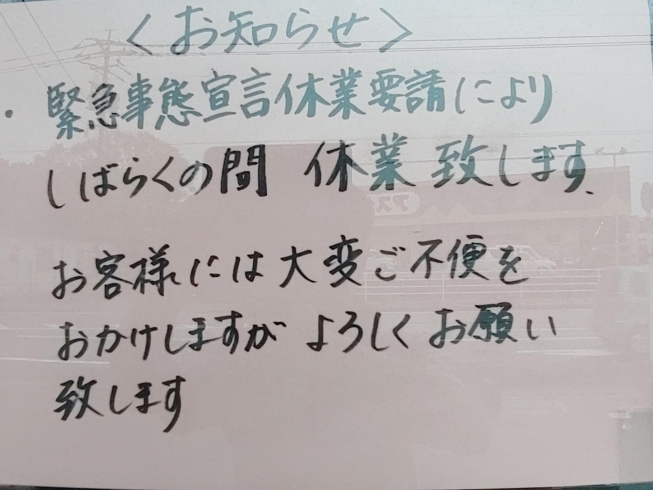 〈お知らせ〉
・緊急事態宣言休業要請により
しばらくの間 休業致します.
お客様には大変ご不便を
おかけしますが よろしくお願い
致します